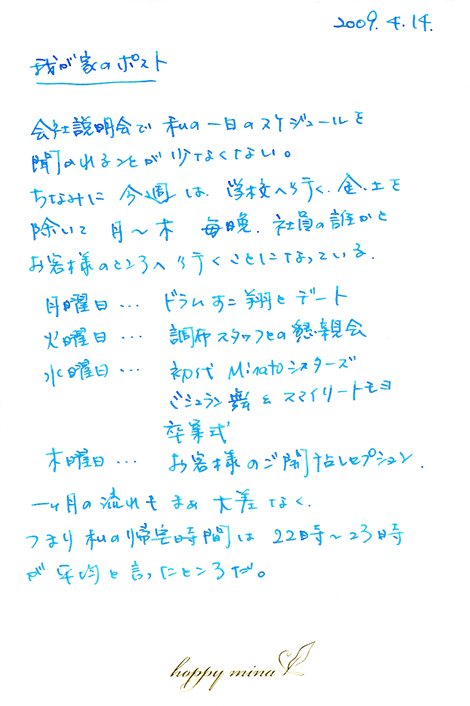 2009. 4. 14.
我が家のポスト
会社説明会で 私の一日のスケジュールを
聞かれることが少なくない。
ちなみに 今週は、学校へ行く 金、土を
除いて 月〜木 毎晩、社員の誰かと
お客様のところへ行くことになっている。
月曜日… ドラムすこ翔とデート
火曜日… 調布スタッフとの懇親会
水曜日… 初代 Minatoシスターズ
ミシュラン舞 & スマイリートモヨ
卒業式
木曜日… お客様のご開店レセプション.
一ヶ月の流れも まぁ 大差なく、
つまり 私の帰宅時間は 22時〜23時
が 平均と言ったところだ。
happy mina